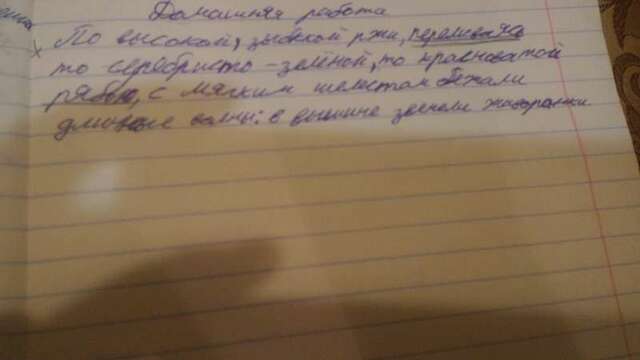 Домашняя работа
По высокой, зыбкой ржи, переливаясь
то серебристо-зелёной, то красноватой
рябью, с мягким шелестом бежали
длинные волны: в вышине звенели жаворонки